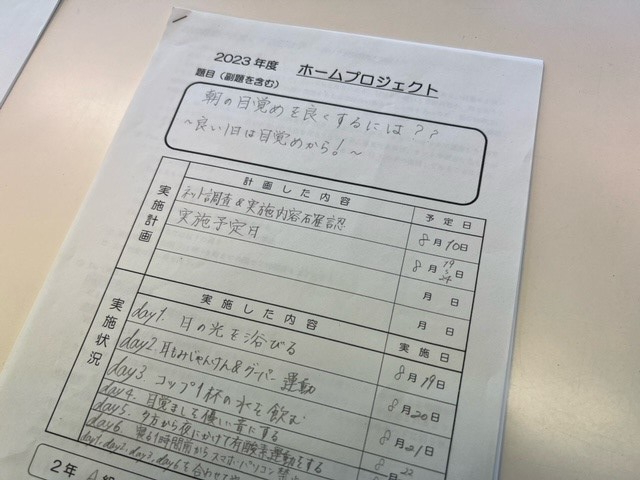 2023年度 ホームプロジェクト
題目（副題を含む）
朝の目覚めを良くするには？？
～良い1日は目覚めから！～
実施計画
計画した内容 予定日
ネット調査&実施内容確認 8月10日
実施予定日 8月19~24日
月 日
月 日
実施状況
実施した内容 実施日
day1. 日の光を浴びる 8月19日
day2. 耳もみじゃんけん&グーパー運動 8月20日
day3. コップ1杯の水を飲む 8月21日
day4. 目覚ましを優しい音にする 8月22
day5. 夕方から夜にかけて有酸素運動をする
day6. 寝る1時間前からスマホ・パソコン禁止
day1,day2,day3,day6を合わせて
2年